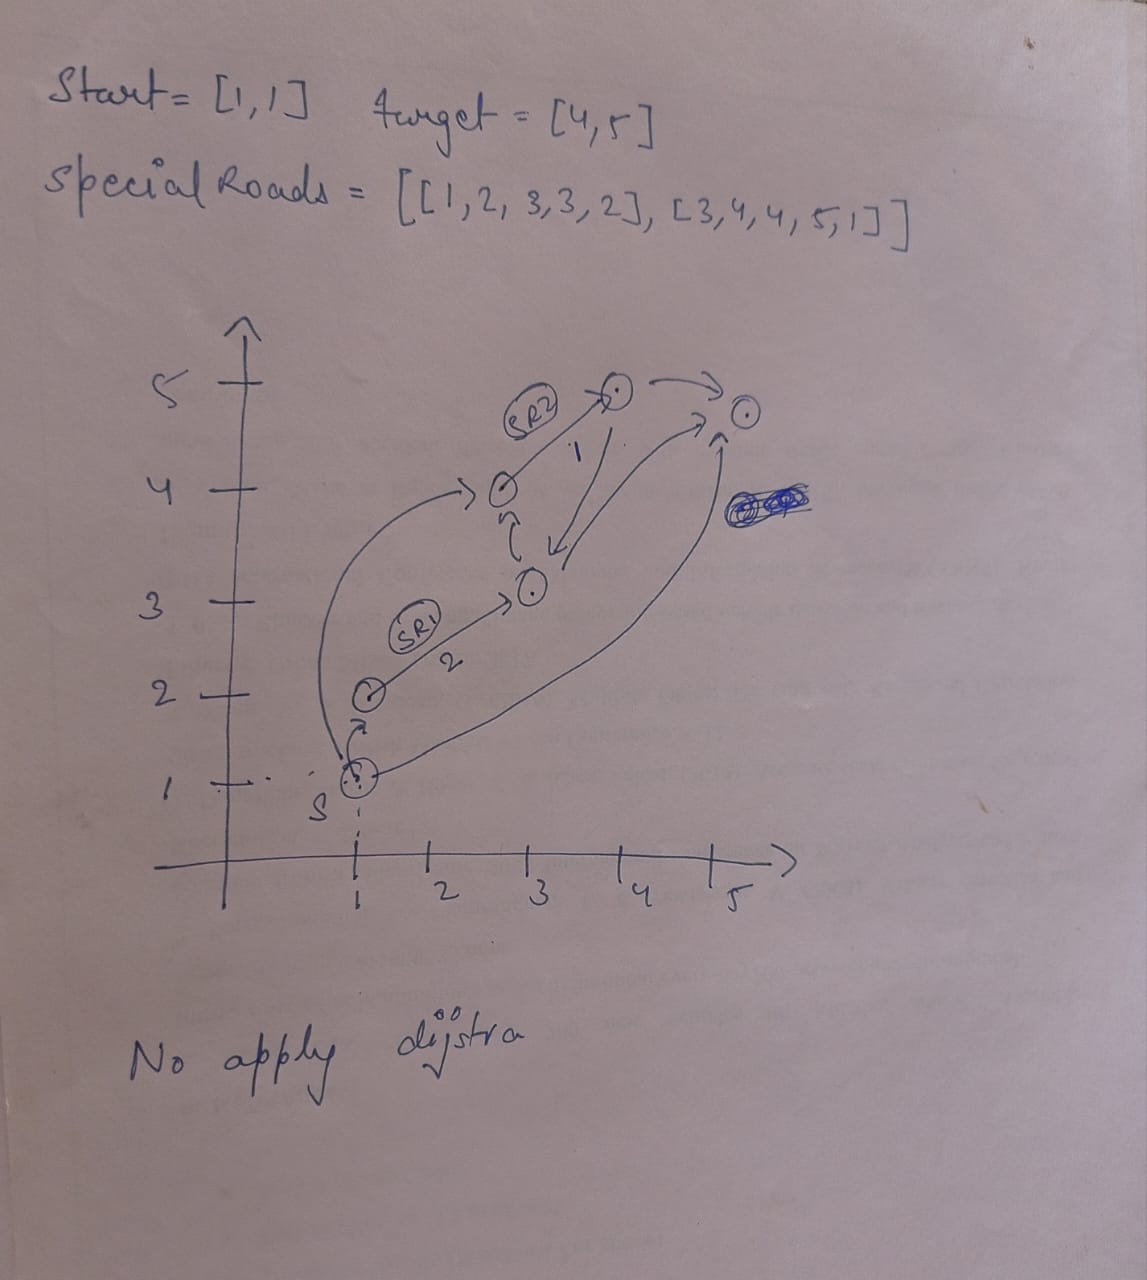 Start = [1,1] target = [4,5]
Special Roads = [[1,2,3,3,2], [3,4,4,5,1]]
5
SR2
1
4
3
SR1
2
2
1
S
1 2 3 4 5
No apply dijstra